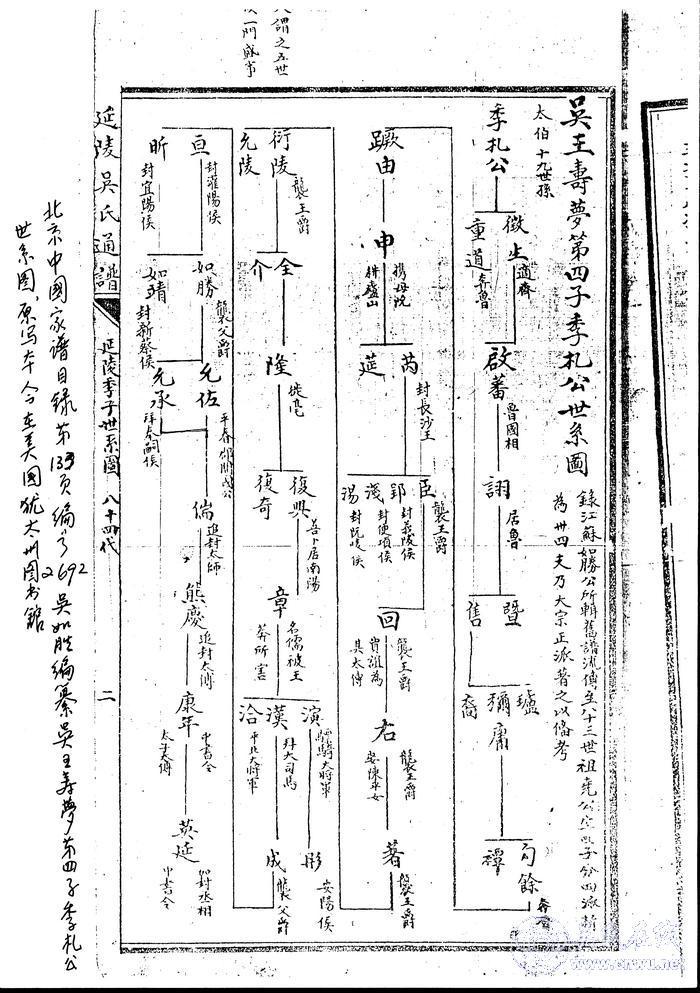 吳王壽夢第四子季札公世系圖
太伯十九世孫
錄江蘇如勝公所輯舊譜流傳至八十三世祖堯公
為卅四夫乃大宗正派著之以備考
季札公
徵生
適齊
重道
奔魯
啟蕃
魯國相
詡
居魯
暨
售
瓐
彌庸
裔
句餘
禫
蹶由
申
携母阮
耕廬山
芮
莚
封長沙王
臣
襲王爵
郢
封義陵侯
淺
封便頃侯
湯
封阮陵侯
回
襲王爵
右
襲王爵
娶陳平女
著
襲王爵
衍陵
襲王爵
允陵
全
介
隆
徙亳
復興
善卜居南陽
復奇
章
名儒被王
莽所害
演
驃騎大將軍
漢
拜大司馬
洽
平北大將軍
彤
安陽侯
成
襲父爵
亘
封灌陽侯
昕
封宜陽侯
如勝
襲父爵
如靖
封新蔡侯
允佐
允承
偳
追封太師
熊慶
追封太傅
康年
中書令
太子太傅
英延
加封丞相
中書令
延陵吳氏通譜
延陵季子世系圖
八十四代
二
北京中國家谱目錄第133页編号2692 吳如胜編纂吴王寿夢第四子季札公
世系图，原写本今在美国犹太州图书館
人謂之五世
一門盛事
www.cnwu.net